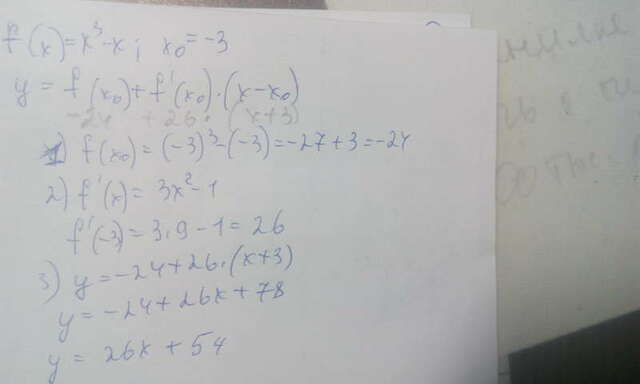 f(x)=x³-x; x₀=-3
y = f(x₀)+f'(x₀)·(x-x₀)
-24 + 26· (x+3)
1) f(x₀) = (-3)³-(-3)=-27+3=-24
2) f'(x)= 3x²-1
f'(-3)=3·9-1=26
3) y=-24+26·(x+3)
y=-24+26x+78
y= 26x+54